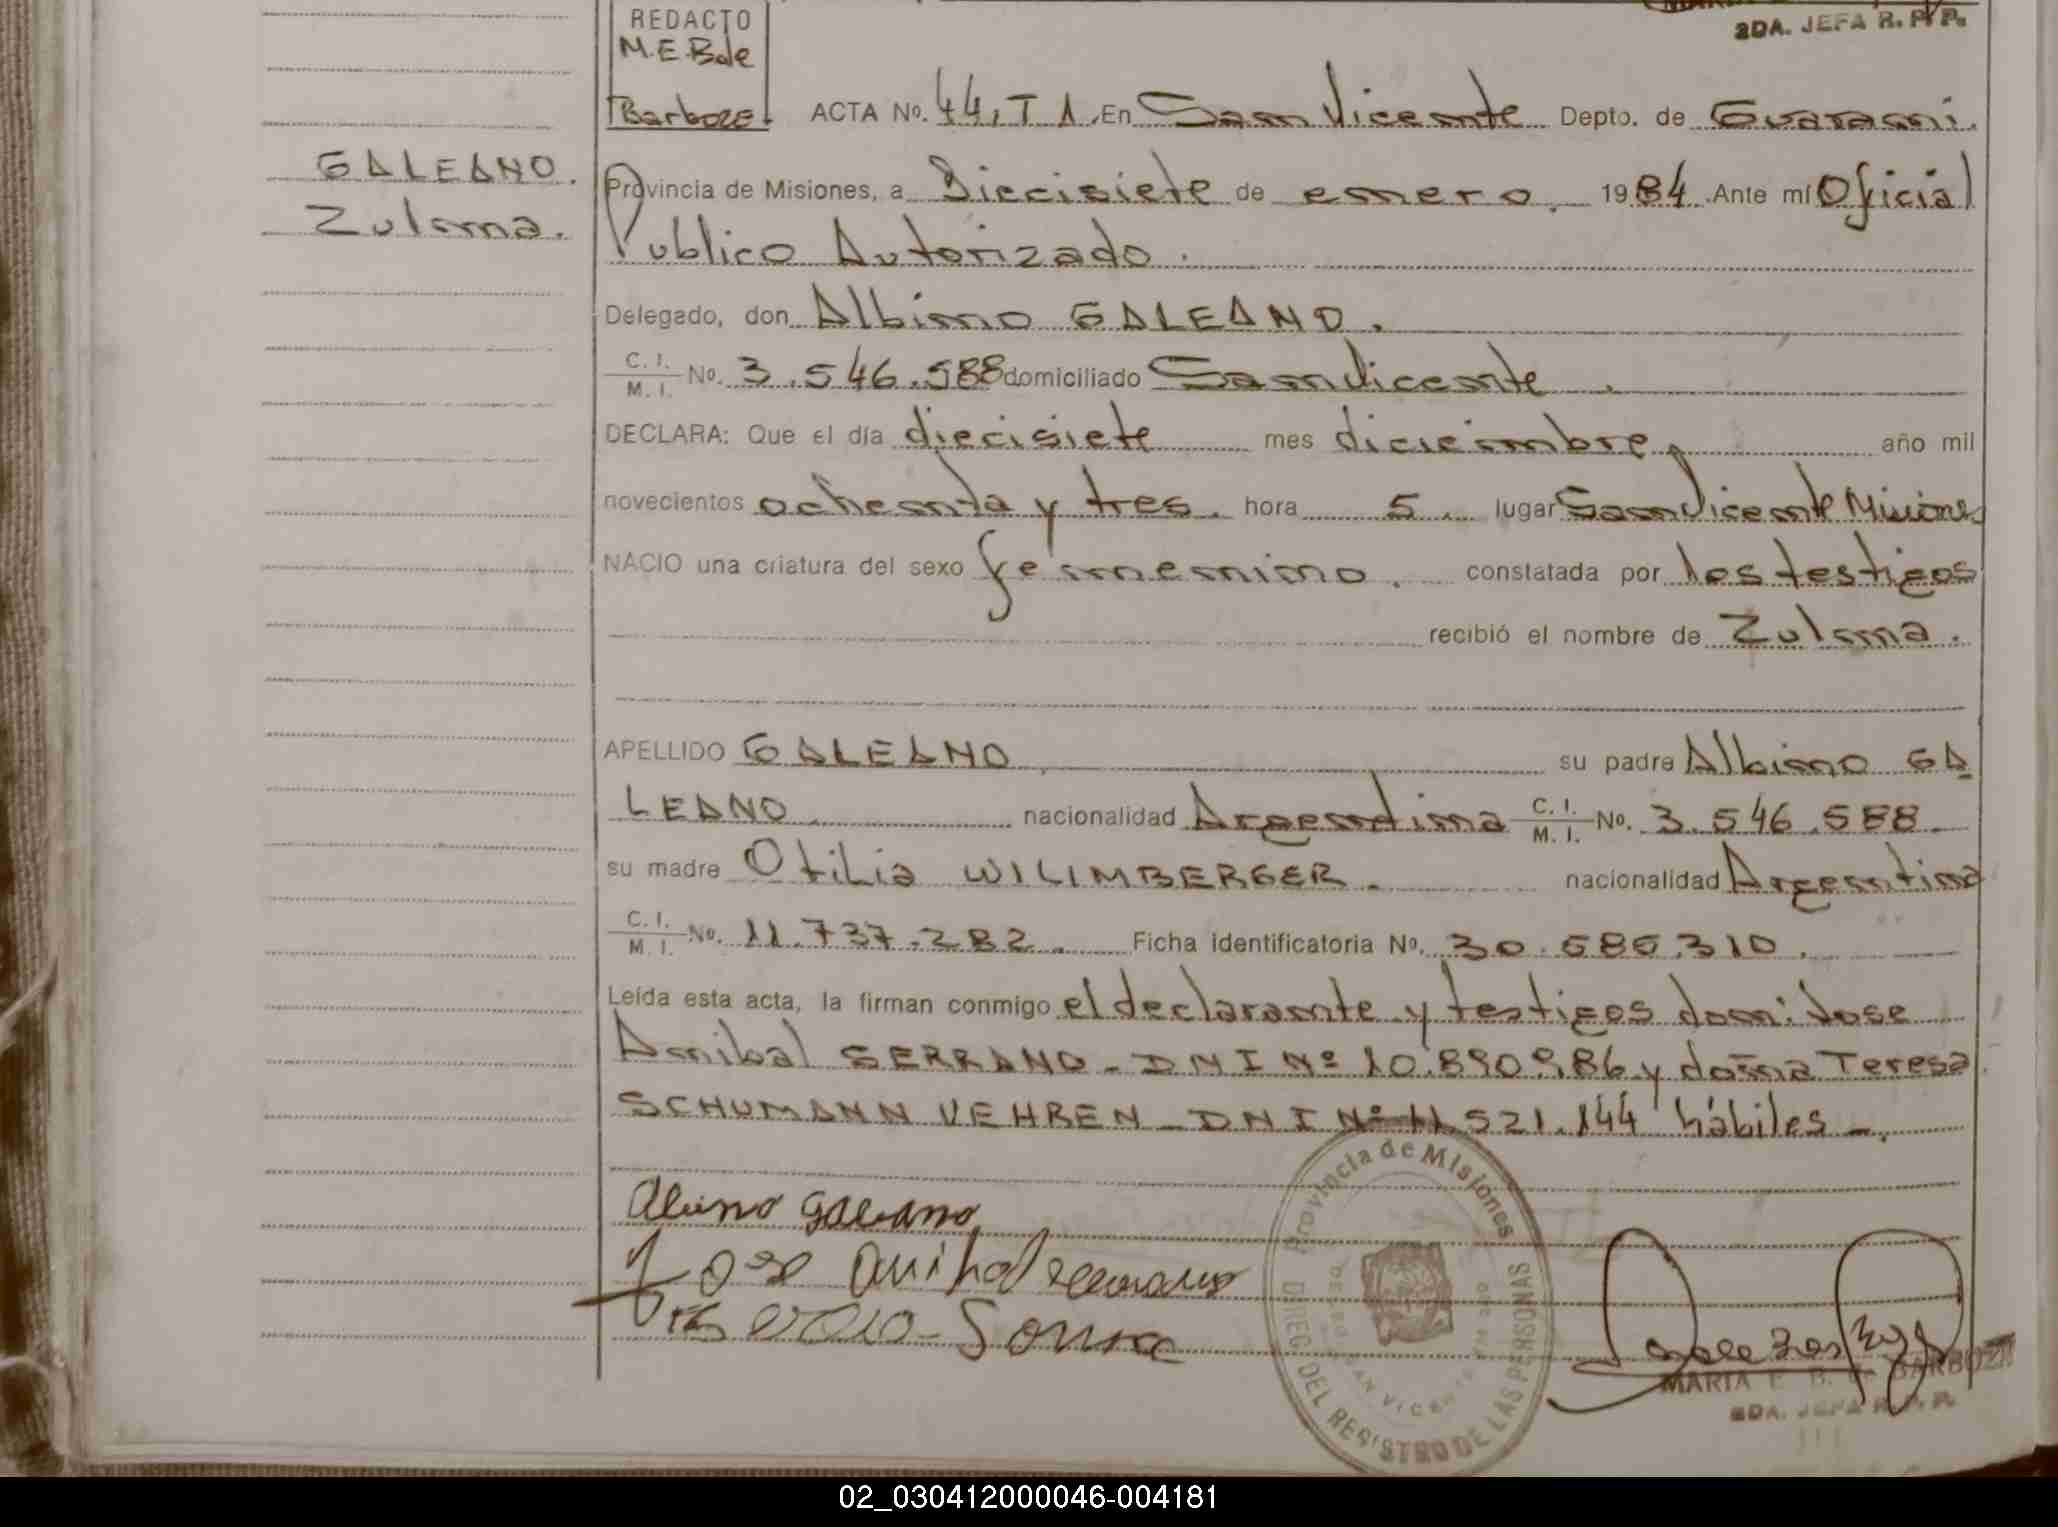 2DA. JEFA R. P. P.
REDACTO
M.E.B de
Barboza
ACTA No. 44, T 1. En San Vicente Depto. de Guaraní.
GALEANO.
Zulma.
Provincia de Misiones, a Diecisiete de enero. 1984. Ante mí Oficial
Publico Autorizado.
Delegado, don Albino GALEANO.
C. I. / M. I. No. 3.546.588 domiciliado San Vicente.
DECLARA: Que el día diecisiete mes diciembre, año mil
novecientos ochenta y tres. hora 5. lugar San Vicente Misiones
NACIO una criatura del sexo femenino. constatada por los testigos
recibió el nombre de Zulma.
APELLIDO GALEANO su padre Albino GA
LEANO nacionalidad Argentina C. I. / M. I. No. 3.546.588
su madre Otilia WILIMBERGER. nacionalidad Argentina
C. I. / M. I. No. 11.737.282. Ficha identificatoria No. 30.585.310.
Leída esta acta, la firman conmigo el declarante y testigos don: Jose
Anibal SERRANO - DNI Nº 10.890.986 y doña Teresa
SCHUMANN VEHREN - DNI Nº 11.521.144 hábiles -.
Albino Galeano
Jose Anibal Serrano
Provincia de Misiones
DIREC. DEL REGISTRO DE LAS PERSONAS
SAN VICENTE
MARIA E. B. de BARBOZA
2DA. JEFA R. P. P.
02_030412000046-004181